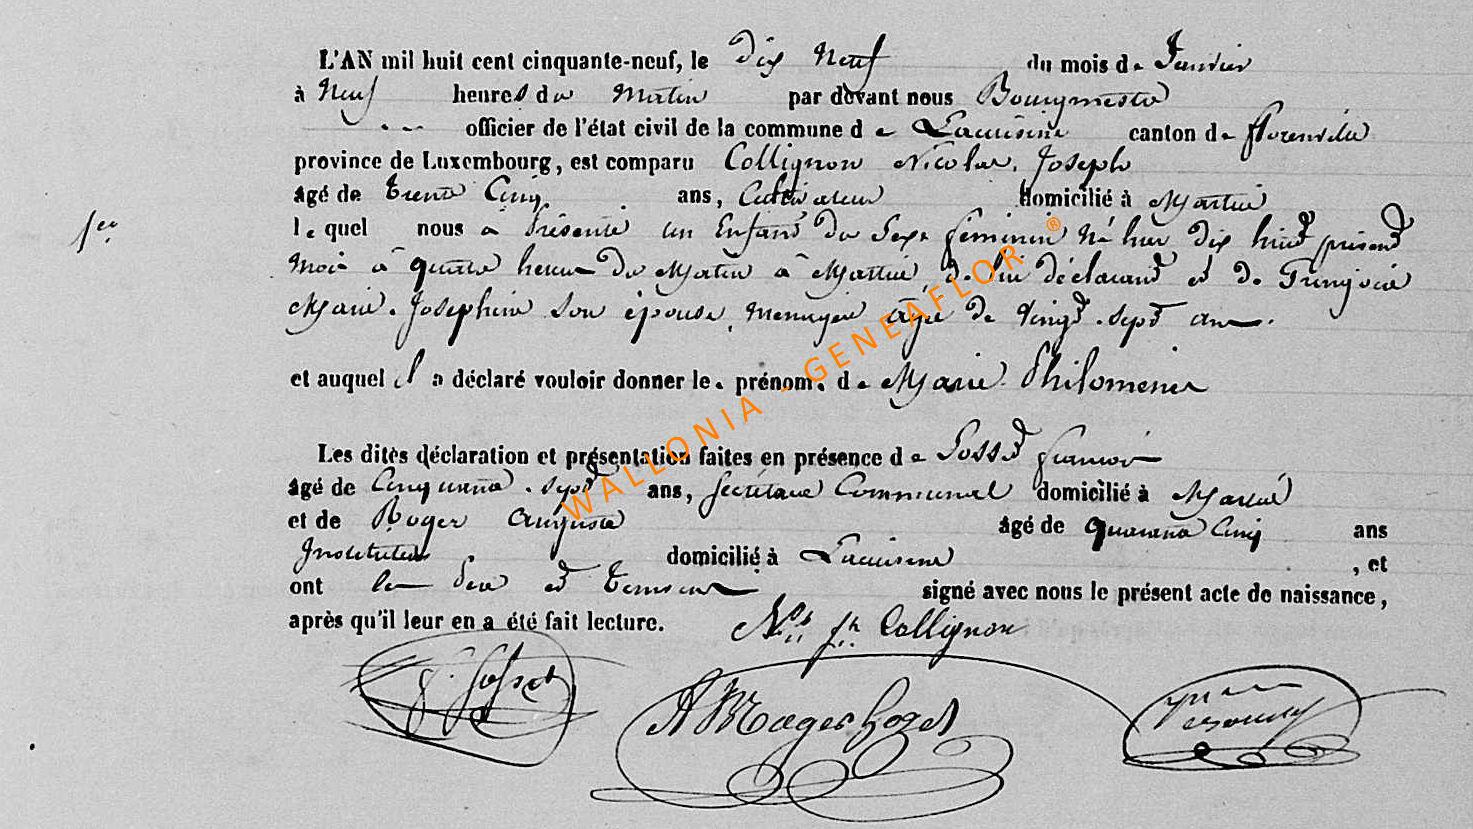 L'AN mil huit cent cinquante-neuf, le Dix Neuf du mois de Janvier
à Neuf heures du Matin par devant nous Bourgmestre
officier de l'état civil de la commune de Lacuisine canton de florenville
province de Luxembourg, est comparu Collignon Nicolas. Joseph
âgé de trente Cinq ans, Cultivateur domicilié à Martué
lequel nous a Présenté un Enfant du Sexe feminin Né hier dix huit présent
Mois à quatre heures du Matin à Martué, de lui déclarant et de
Marie. Josephine son épouse, Menagère âgée de Vingt. sept ans.
et auquel il a déclaré vouloir donner le. prénom. de Marie. Philomene
Les dites déclaration et présentation faites en présence de Gosset francois
âgé de Cinquante. sept ans, Secrétaire Communal domicilié à Martué
et de Roger Auguste âgé de quarante Cinq ans
Instituteur domicilié à Lacuisine, et
ont le Père et temoins signé avec nous le présent acte de naissance,
après qu'il leur en a été fait lecture. Nas Jh Collignon
f. Gosset
WALLONIA - GENEAFLOR ®